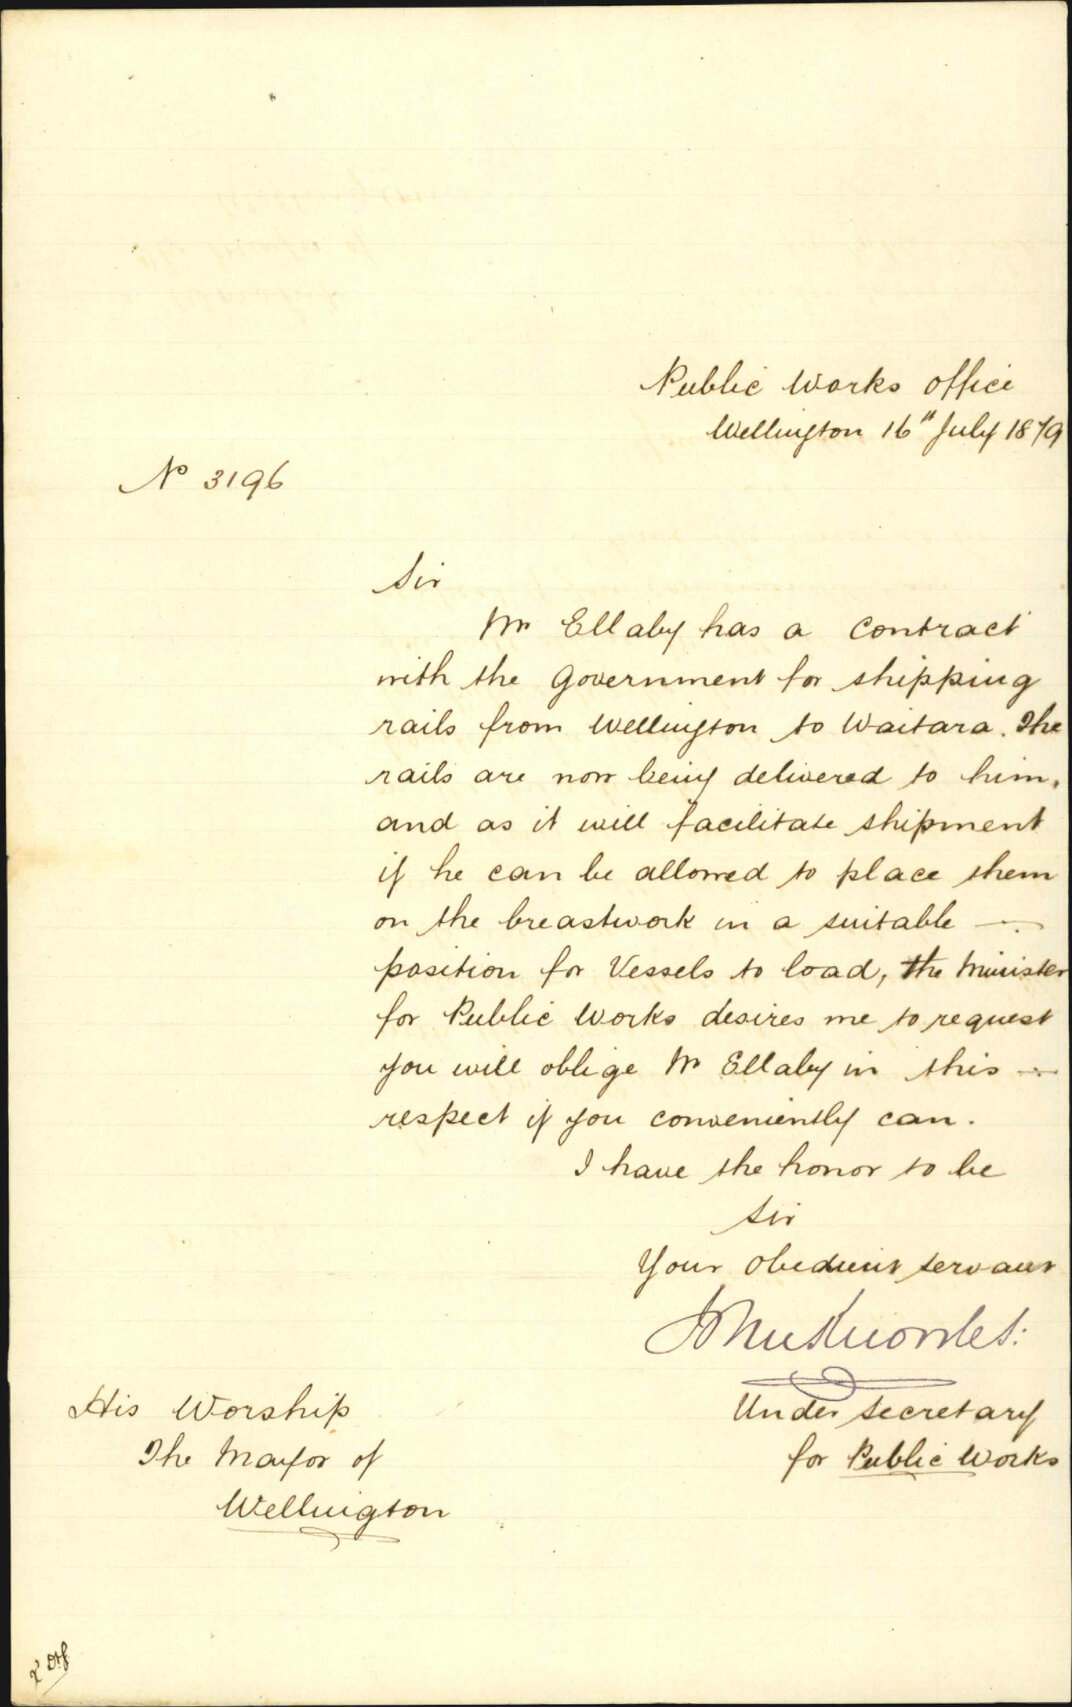 Public Works Office
Wellington 16th July 1879
No 3196
Sir
Mr Ellaby has a contract
with the Government for shipping
rails from Wellington to Waitara. The
rails are now being delivered to him,
and as it will facilitate shipment
if he can be allowed to place them
on the breastwork in a suitable
position for Vessels to load, the Minister
for Public Works desires me to request
you will oblige Mr Ellaby in this
respect if you conveniently can.
I have the honor to be
Sir
Your obedient servant
Under Secretary
for Public Works
His Worship
The Mayor of
Wellington